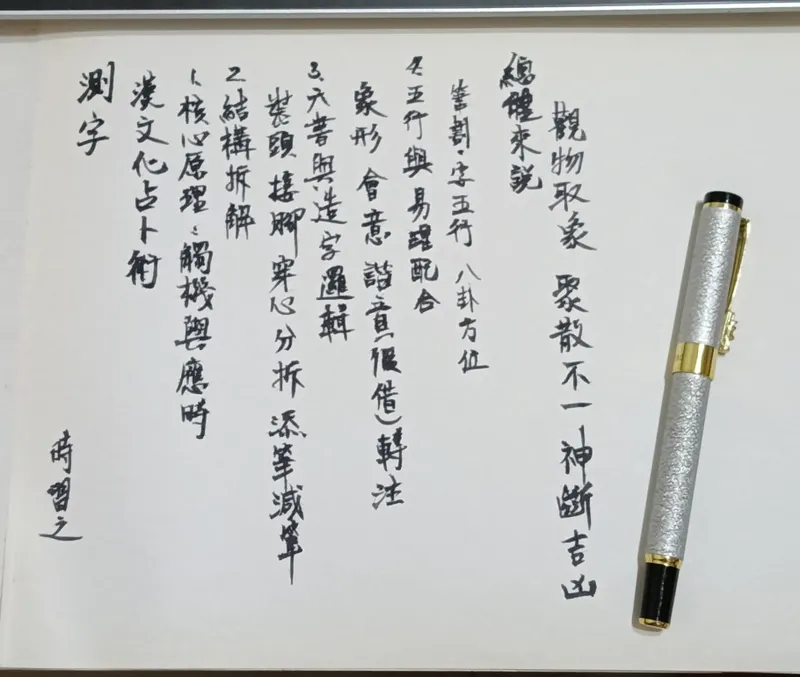 測字
漢文化占卜術
1. 核心原理：觸機與應時
2. 結構拆解
裝頭 接腳 穿心 分拆 添筆減筆
3. 六書與造字邏輯
象形 會意 諧音(假借)轉注
4. 五行與易理配合
筆劃·字五行 八卦方位
總體來説
觀物取象 聚散不一 神斷吉凶
時習之